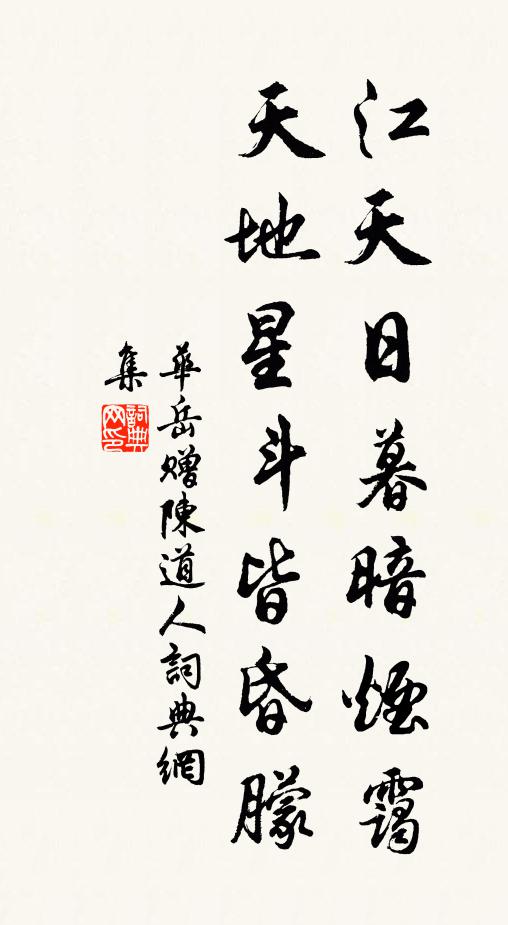 江天日暮暗煙靄
天地星斗皆昏朦
華岳贈陳道人詞典網
集
詞典網印